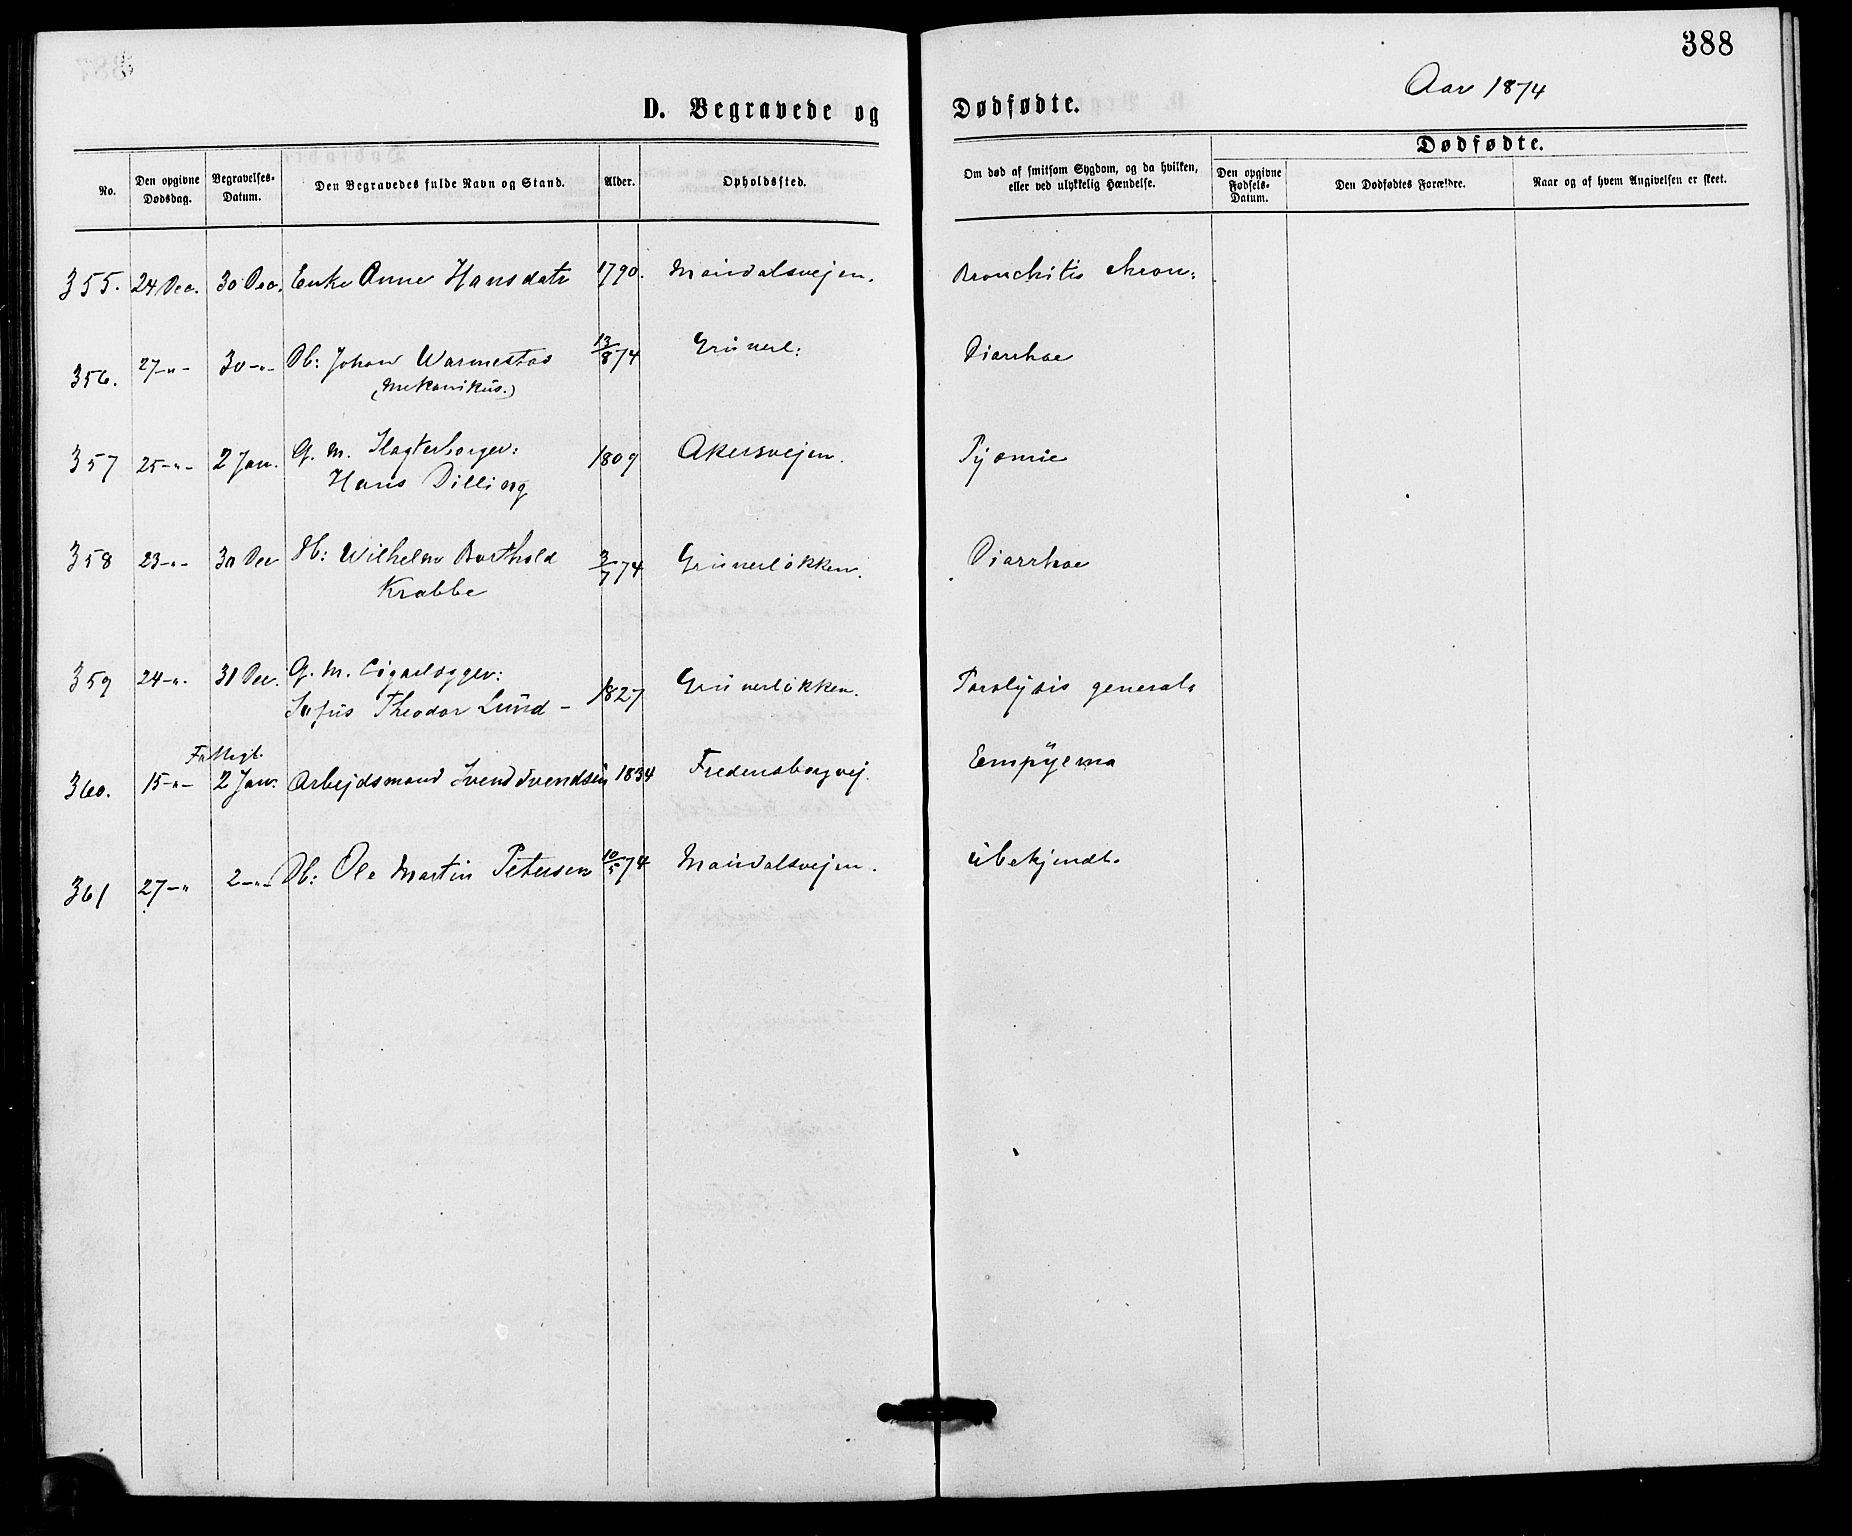 388
Aar 1874
D. Begravede og Dødfødte.
Dødfødte.
No. | Den opgivne Dødsdag. | Begravelses-Datum. | Den Begravedes fulde Navn og Stand. | Alder. | Opholdssted. | Om død af smitsom Sygdom, og da hvilken, eller ved ulykkelig Hændelse. | Den opgivne Fødsels-Datum. | Den Dødfødtes Forældre. | Naar og af hvem Angivelsen er skeet.
355. 24 Dec. 30 Dec. Enke Anne Hansdatr 1790. Maridalsvejen. Bronchitis chron:
356. 27-"- 30-"- Db: Johan Warmestad 13/8 74 Grünerl: Diarrhae
(Mekanikus.)
357 25-"- 2 Jan. G. M. Slagterborger: 1809 Akersvejen. Pyæmie
Hans Dilling
358 23-"- 30 Dec Db: Wilhelm Barthold 3/7 74 Grünerløkken. Diarrhae
Krabbe
359 24-". 31 Dec. G. M. Cigarlægger: 1827 Grünerløkken. Paralysis general.
Sofus Theodor Lund -
Fattigt.
360. 15-"- 2 Jan. Arbejdsmand Svend Svendsen 1834 Fredensborgvej. Empyema
361 27-" 2-"- Db: Ole Martin Petersen 10/5 74 Maridalsvejen. Ubekjendt.